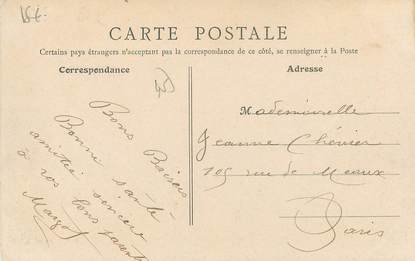 15€.
CARTE POSTALE
Certains pays étrangers n'acceptant pas la correspondance de ce côté, se renseigner à la Poste
Correspondance
45
Bons Baisers
Bonne santé
amitié sincère
à vos bons parents
Margot
Adresse
Mademoiselle
Jeanne Chénier
105 rue de Meaux
Paris